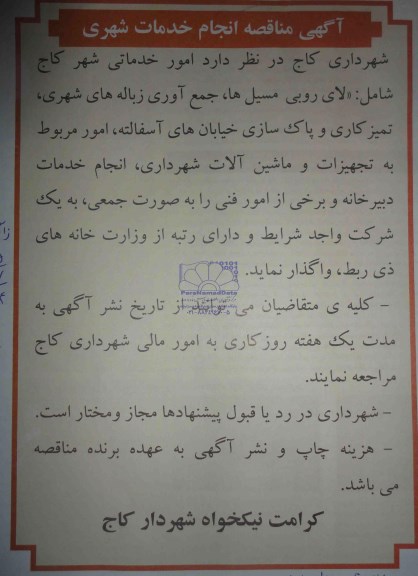 آگهی مناقصه انجام خدمات شهری
شهرداری کاج در نظر دارد امور خدماتی شهر کاج
شامل: «لای روبی مسیل ها، جمع آوری زباله های شهری،
تمیز کاری و پاک سازی خیابان های آسفالته، امور مربوط
به تجهیزات و ماشین آلات شهرداری، انجام خدمات
دبیرخانه و برخی از امور فنی را به صورت جمعی، به یک
شرکت واجد شرایط و دارای رتبه از وزارت خانه های
ذی ربط، واگذار نماید.
ParsNamadData
- کلیه ی متقاضیان می توانند از تاریخ نشر آگهی به
مدت یک هفته روز کاری به امور مالی شهرداری کاج
مراجعه نمایند.
- شهرداری در رد یا قبول پیشنهادها مجاز و مختار است.
- هزینه چاپ و نشر آگهی به عهده برنده مناقصه
می باشد.
کرامت نیکخواه شهردار کاج